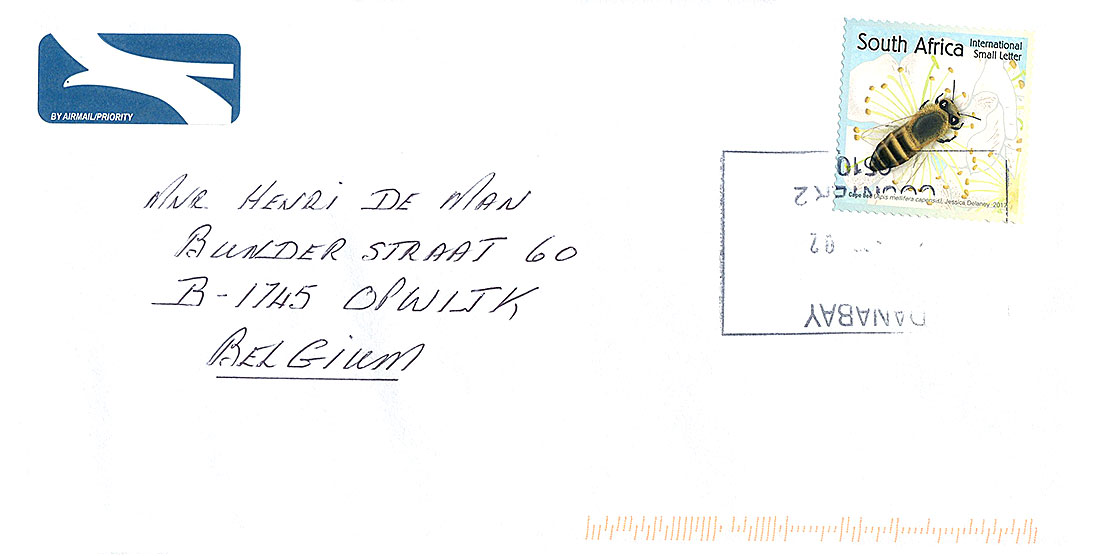 BY AIRMAIL/PRIORITY
South Africa International
Small Letter
Cape Bee (Apis mellifera capensis), Jessica Delaney, 2017
MNR HENRI DE MAN
BUNDER STRAAT 60
B-1745 OPWIJK
BELGIUM
DANABAY
02
COUNTER 2
6510